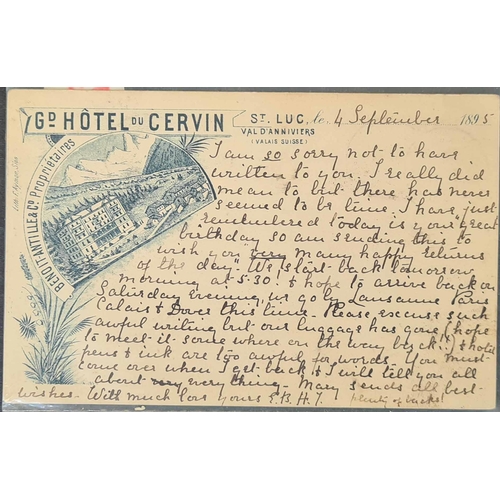 GD HÔTEL DU CERVIN
BENOIT-ANTILLE & CO. Propriétaires
ST. LUC, le 4 September 1895
VAL D'ANNIVIERS
(VALAIS SUISSE)
I am so sorry not to have
written to you. I really did
mean to but there has never
seemed to be time. I have just
remembered today is your "great
birthday" so am sending this to
wish you very many happy returns
of the day. We start back tomorrow
morning at 5.30! & hope to arrive back on
Saturday evening, we go by Lausanne Paris
Calais & Dover this time. Please excuse such
awful writing but our luggage has gone (hope
to meet it some where on the way back!!) & hotel
pens & ink are too awful for words. You must
come over when I get back & I will tell you all
about everything - Mary sends all best
wishes. With much love yours E.B.H.T.
plenty of backs!